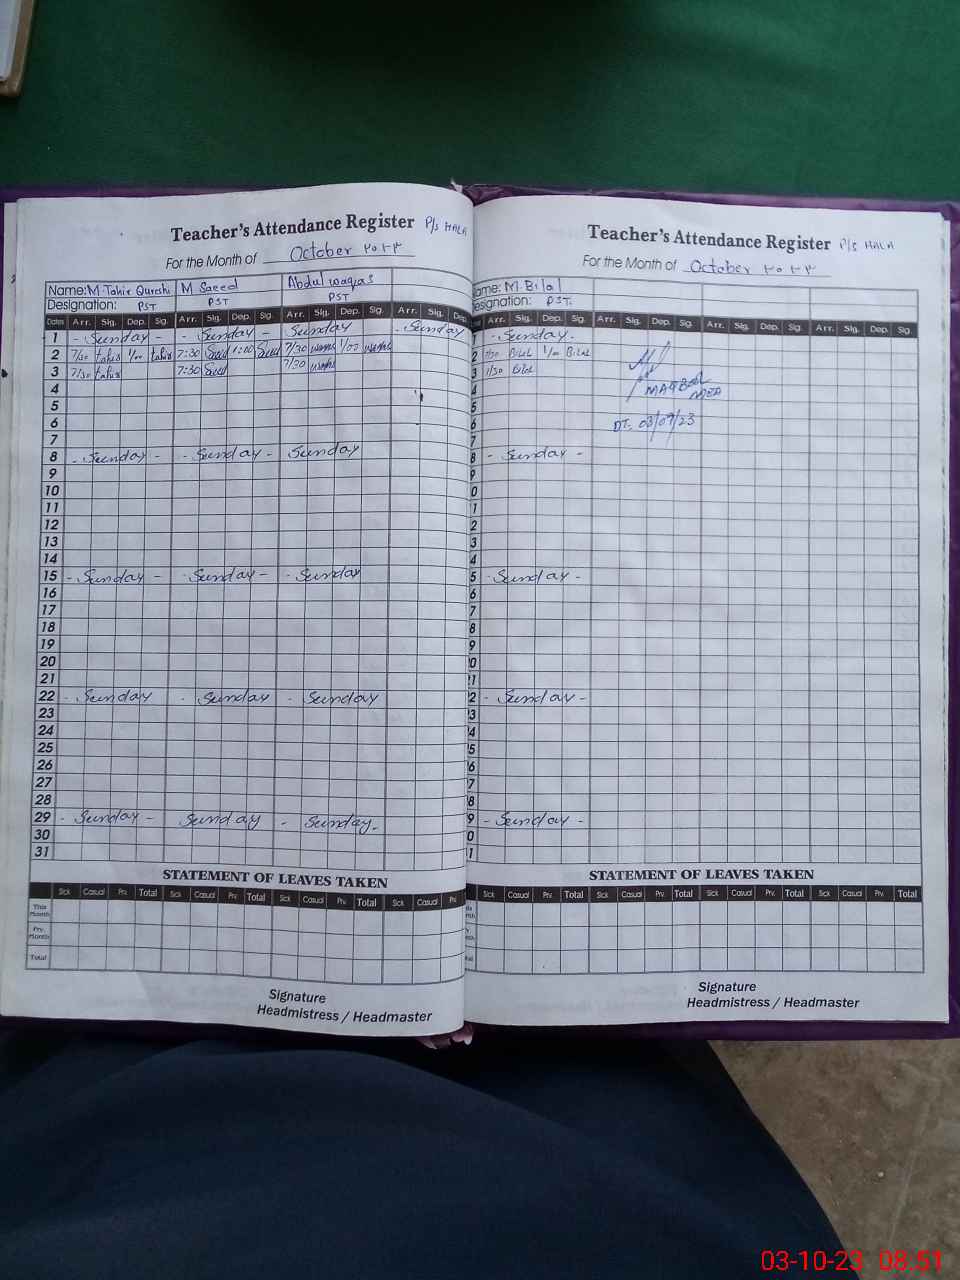 Teacher's Attendance Register P/s HALA
For the Month of October ۲۰۲۳
Name: M Tahir Qureshi M Saeed Abdul waqas
Designation: PST PST PST
Dates Arr. Sig. Dep. Sig. Arr. Sig. Dep. Sig. Arr. Sig. Dep. Sig. Arr. Sig. Dep.
1 - Sunday - - Sunday - Sunday - Sunday
2 7/30 tahir 1/00 tahir 7:30 Saeed 1:00 Saeed 7/30 waqas 1/00 waqas
3 7/30 tahir 7:30 Saeed 7/30 waqas
4
5
6
7
8 - Sunday - - Sunday - Sunday
9
10
11
12
13
14
15 - Sunday - - Sunday - - Sunday
16
17
18
19
20
21
22 - Sunday - Sunday - Sunday
23
24
25
26
27
28
29 - Sunday - Sunday - Sunday -
30
31
STATEMENT OF LEAVES TAKEN
Sick Casual Prv. Total Sick Casual Prv. Total Sick Casual Prv. Total Sick Casual Prv
This Month
Prv. Month
Total
Signature
Headmistress / Headmaster
Teacher's Attendance Register P/s HALA
For the Month of October ۲۰۲۳
ame: M. Bilal
esignation: PST.
Arr. Sig. Dep. Sig. Arr. Sig. Dep. Sig. Arr. Sig. Dep. Sig. Arr. Sig. Dep. Sig.
1 - Sunday.
2 7/30 Bilal 1/00 Bilal
3 7/30 Bilal
4 MEA
5
6 DT. 03/09/23
7
8 - Sunday -
9
0
1
2
3
4
5 - Sunday -
6
7
8
9
0
1
2 - Sunday -
3
4
5
6
7
8
9 - Sunday -
0
1
STATEMENT OF LEAVES TAKEN
Sick Casual Prv. Total Sick Casual Prv. Total Sick Casual Prv. Total Sick Casual Prv. Total
Signature
Headmistress / Headmaster
03-10-23 08:51